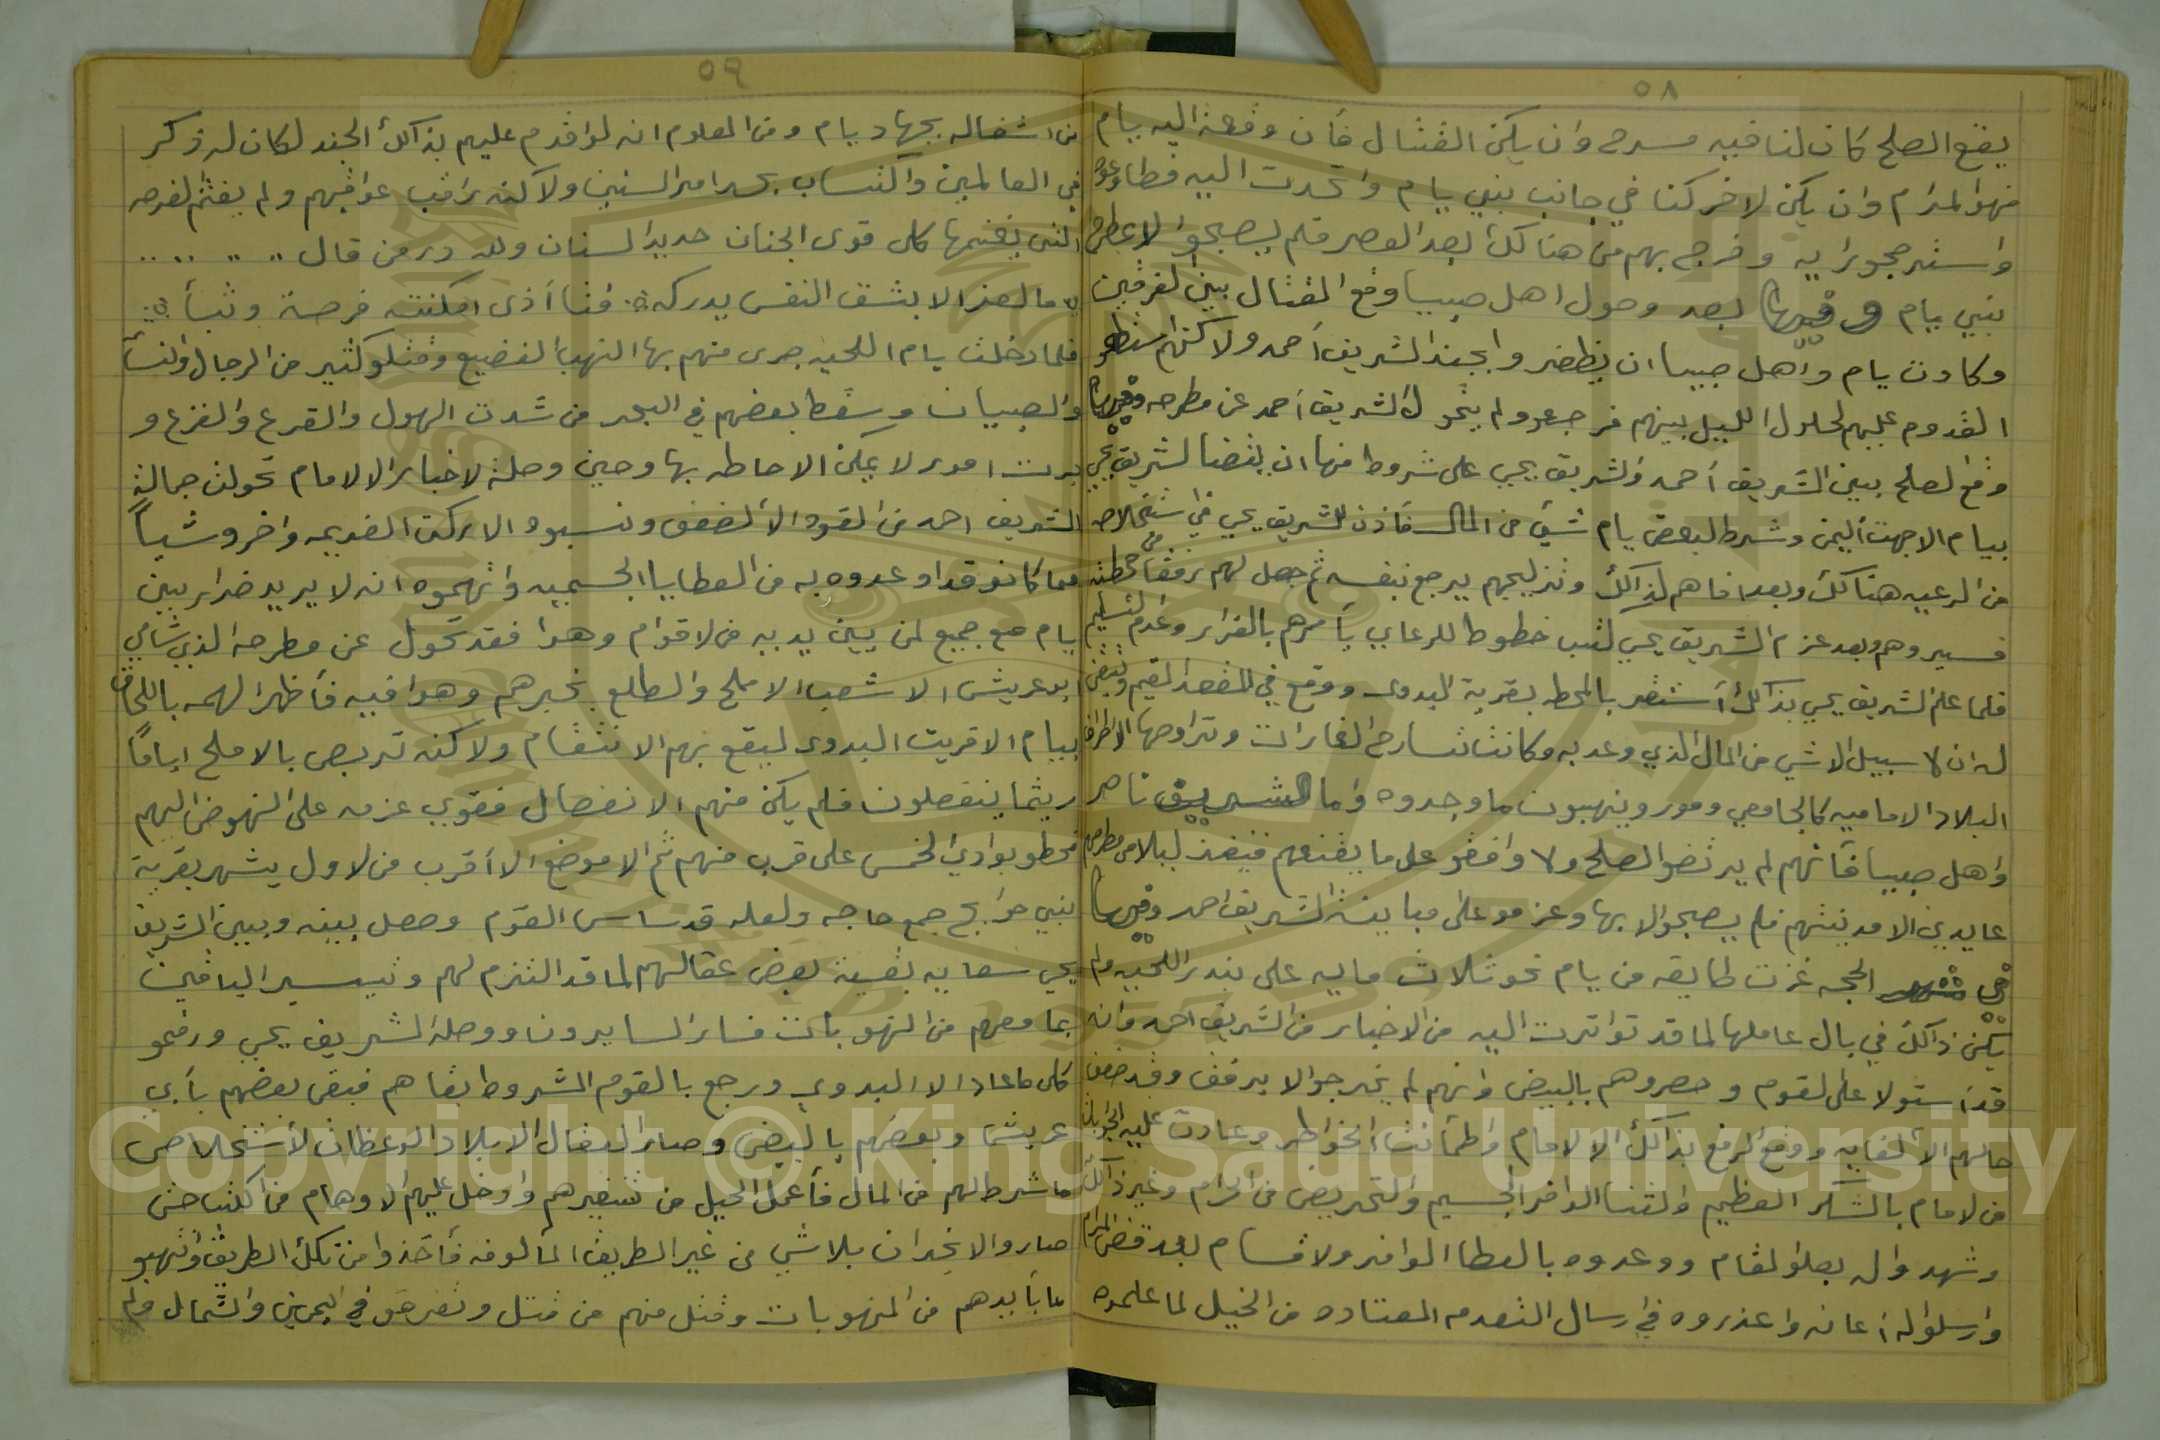 ٥٨
يقع الصلح كان لنا فيه مسرح وان يكن القتال فأن وقعة اليه بيام
فهو المرام وان يكن لاخر كنا في جانب بني يام واتحدت اليه فطاوعوه
واستر جحو رايه وخرج بهم من هنالك بعد العصر فلم يصبحو الا بمطرح
بني يام وفيها بعد وصول اهل صبيا وقع القتال بين الفرقين
وكادت يام واهل صبيا ان يظفرو بجند الشريف أحمد ولاكنهم
القدوم عليهم لحلول الليل بينهم فرجعو ولم يتحول الشريف أحمد عن مطرحه وفيها
وقع الصلح بين الشريف أحمد والشريف يحيي على شروط منها ان يفضا الشريف يحيي
بيام الا جهت اليمن وشرط لبعض يام شيئ من المال فأذن للشريف يحيي في استخلاصه
من الرعيه هنالك وبعد افاهم لذالك وتزليجهم يرجع بنفسه ثم جعل لهم رفقا من خطته
فسيروهم وبعد عزم الشريف يحيي كتب خطوط للرعايي يأمرهم بالفرار وعدم التسليم
فلما علم الشريف يحيي بذالك أستقر بالمحطه بقرية البدوي ووقع في المقعد المقيم
له ان لا سبيل الا شي من المال الذي وعد به وكانت تسارح الغارات وتراوحها الا طراف
البلاد الاماميه كالجامعي ومور وينهبون ما وجدوه وأما الشريف ناصر
واهل صبيا فأنهم لم يرتضو الصلح ولا وافقو على ما يقنعهم فنفذ ليلا من مطرحهم
عايدين الا مدينتهم فلم يصبحو الا بها وعزمو على مباينة الشريف احمد وفيها
في شهر الحجه غزت طايفه من يام نحو ثلاث مايه على بندر اللحيه ولم
يكن ذالك في بال عاملها لما قد تواترت اليه من الاخبار من الشريف احمد وانه
قد أستولا على القوم وحصروهم بالبيض وانهم لم يخرجو الا برفق وقد ضعف
حالهم الا الغايه ووقع الرفع بذالك الا الامام واطمأنت الخواطر وعادت عليه الجوابات
من الامام بالشكر العظيم والثنا الوافر الجسيم والتحريض من الحزام وغير ذالك
وشهدو اله بعلو المقام ووعدوه بالعطا الوافر والاقسام بعد قضى المرام
وارسلو اله أعانه واعذروه في ارسال التقدمه المعتاده من الخيل لما علموه
٥٩
من اشغاله بجهاد يام ومن المعلوم انه لو اقدم عليهم بذالك الجند لكان له ذكر
في العالمين واكتساب بحد امر السنين ولاكنه راقب عواقبهم ولم يغتنم الفرصه
التي يغنيمها كل قوى الجنان حديد السنان ولله در من قال .. .. .. ..
ما العز الا بشق النفس يدركه فتا أذى امكنته فرصة وثبا
فلما دخلت يام اللحيه جرى منهم بها النهب الفضيع وقتلو كثير من الرجال والنسا
والصبيان وسقط بعضهم في البحر من شدت الهول والقرع والفزع و
جرت امور لا يمكن الاحاطه بها وحين وصلة الاخبار الا الامام تحولت جمالة
الشريف احمد من القوه الا الضعف ونسبوه الا ركت القديمه واخرو شيأ
مما كانو قد اوعدوه به من العطايا الجسيمه واتهموه انه لا يريد ضرا ربين
يام مع جميع لمن بين يديه من الاقوام وهذا فقد تحول عن مطرحه الذي شأبي
ابو عريش الا شعب الاملح والطلع بخبرهم وهو افيه فأظهر الهمه باللحاق
بيام الا قريت البدوي ليقع بهم الانتقام ولاكنه تربص بالاملح اياماً
ريثما ينفصلون فلم يكن منهم الانفصال فقوي عزمه على النهوض اليهم
فحطو بوادي الخمس على قرب منهم ثم الا موضع الا أقرب من الاول يشهر بقرية
بني حرابح جمع حاجه ولعله قد ساس القوم وحصل بينه وبين الشريف
يحيي سعايه بقيمة لبعض عقالهم لما قد التزم لهم وتيسير الباقين
بما معهم من النهوبات فسار السايرون ووصله الشريف يحيي ورضو
كل ما عاد الا البدوي ورجع بالقوم المشروط بقاهم فبقى بعضهم بأبي
عريش وبعضهم بالبيض وصار العقال الا بلاد الوعظان لأستخلاص
ما شرط لهم من المال فأعمل الحيل من تنفيرهم وادخل عليهم الاوهام من اكلت حتى
صارو الا نجران بلا شي من غير الطريق المألوفه فأخذوا من تلك الطريق ونهبو
ما بأيديهم من المنهوبات وقتل منهم من قتل وتفرقو في اليمين والشمال ولم
Copyright © King Saud University